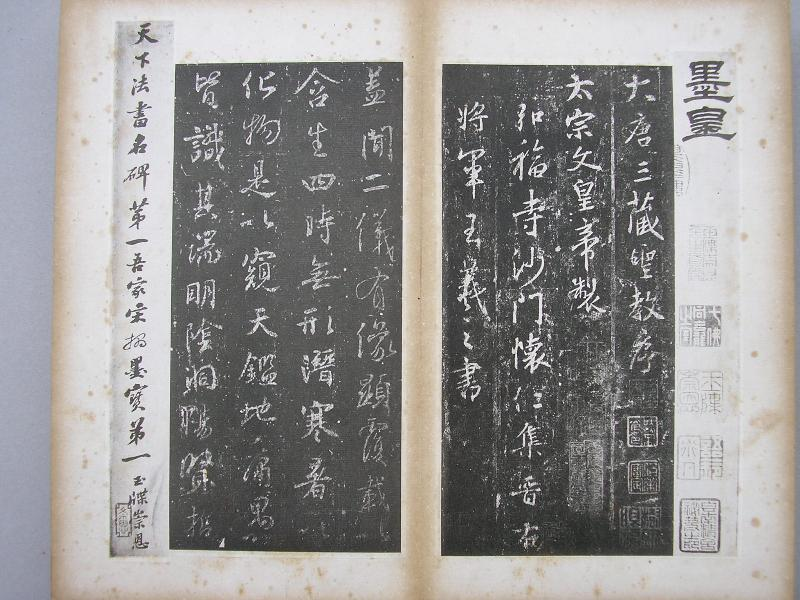 墨皇
大唐三藏聖教序
太宗文皇帝製
弘福寺沙門懷仁集晉右
將軍王羲之書
蓋聞二儀有像顯覆載以
含生四時無形潛寒暑以
化物是以窺天鑑地庸愚
皆識其端明陰洞陽賢哲
天下法書名碑第一吾家宋拓墨寶第一 玉牒崇恩